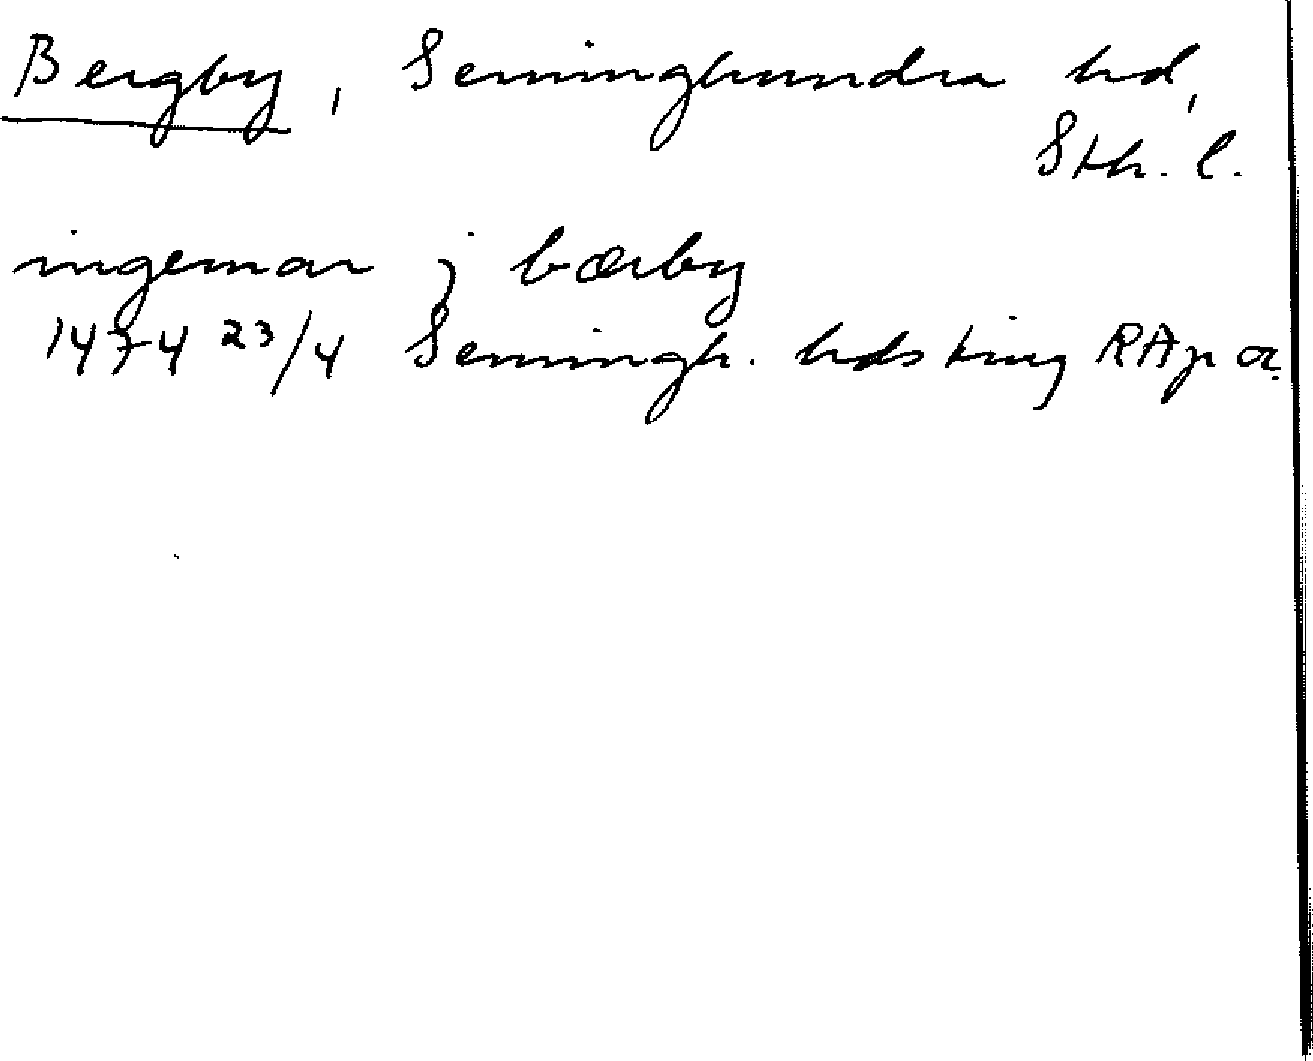 Bergby, Seminghundra hd,
Sth. l.
ingemar j bærby
1474 23/4 Semingh. hds ting RAp or.